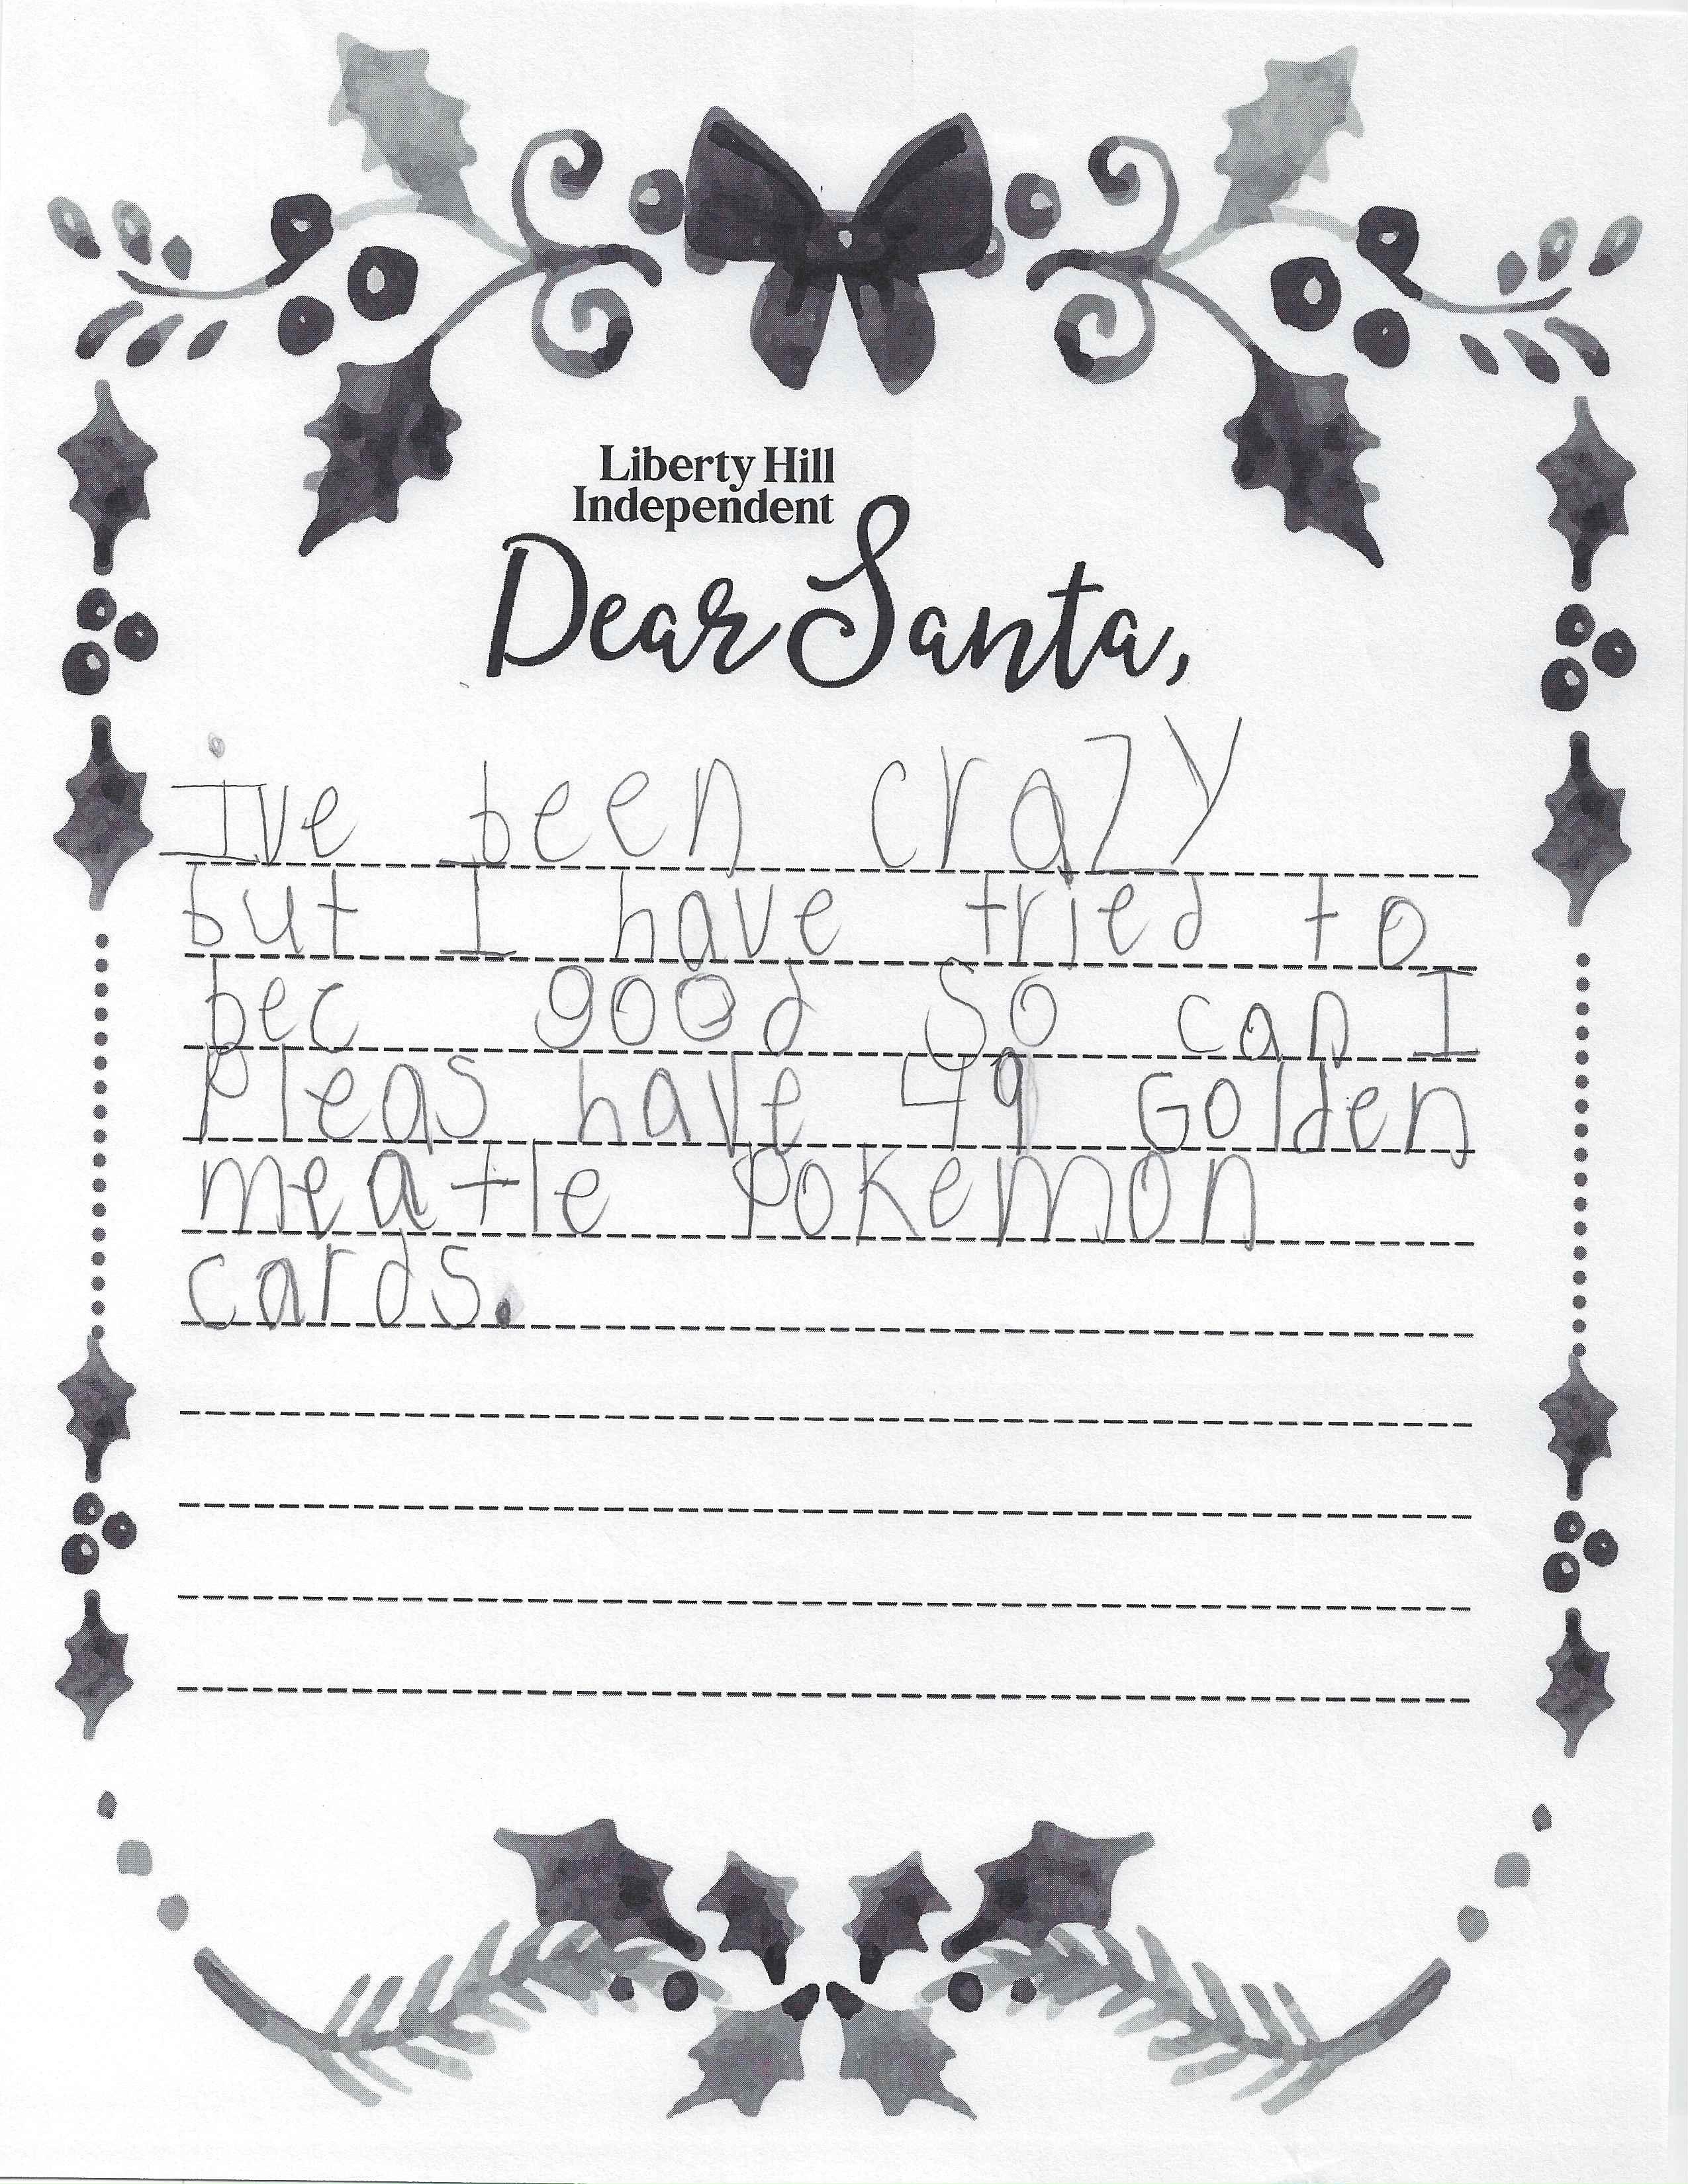 Liberty Hill
Independent
Dear Santa,
Ive been crazy
but I have tried to
bec good so can I
Pleas have 49 Golden
meatle Pokemon
cards.